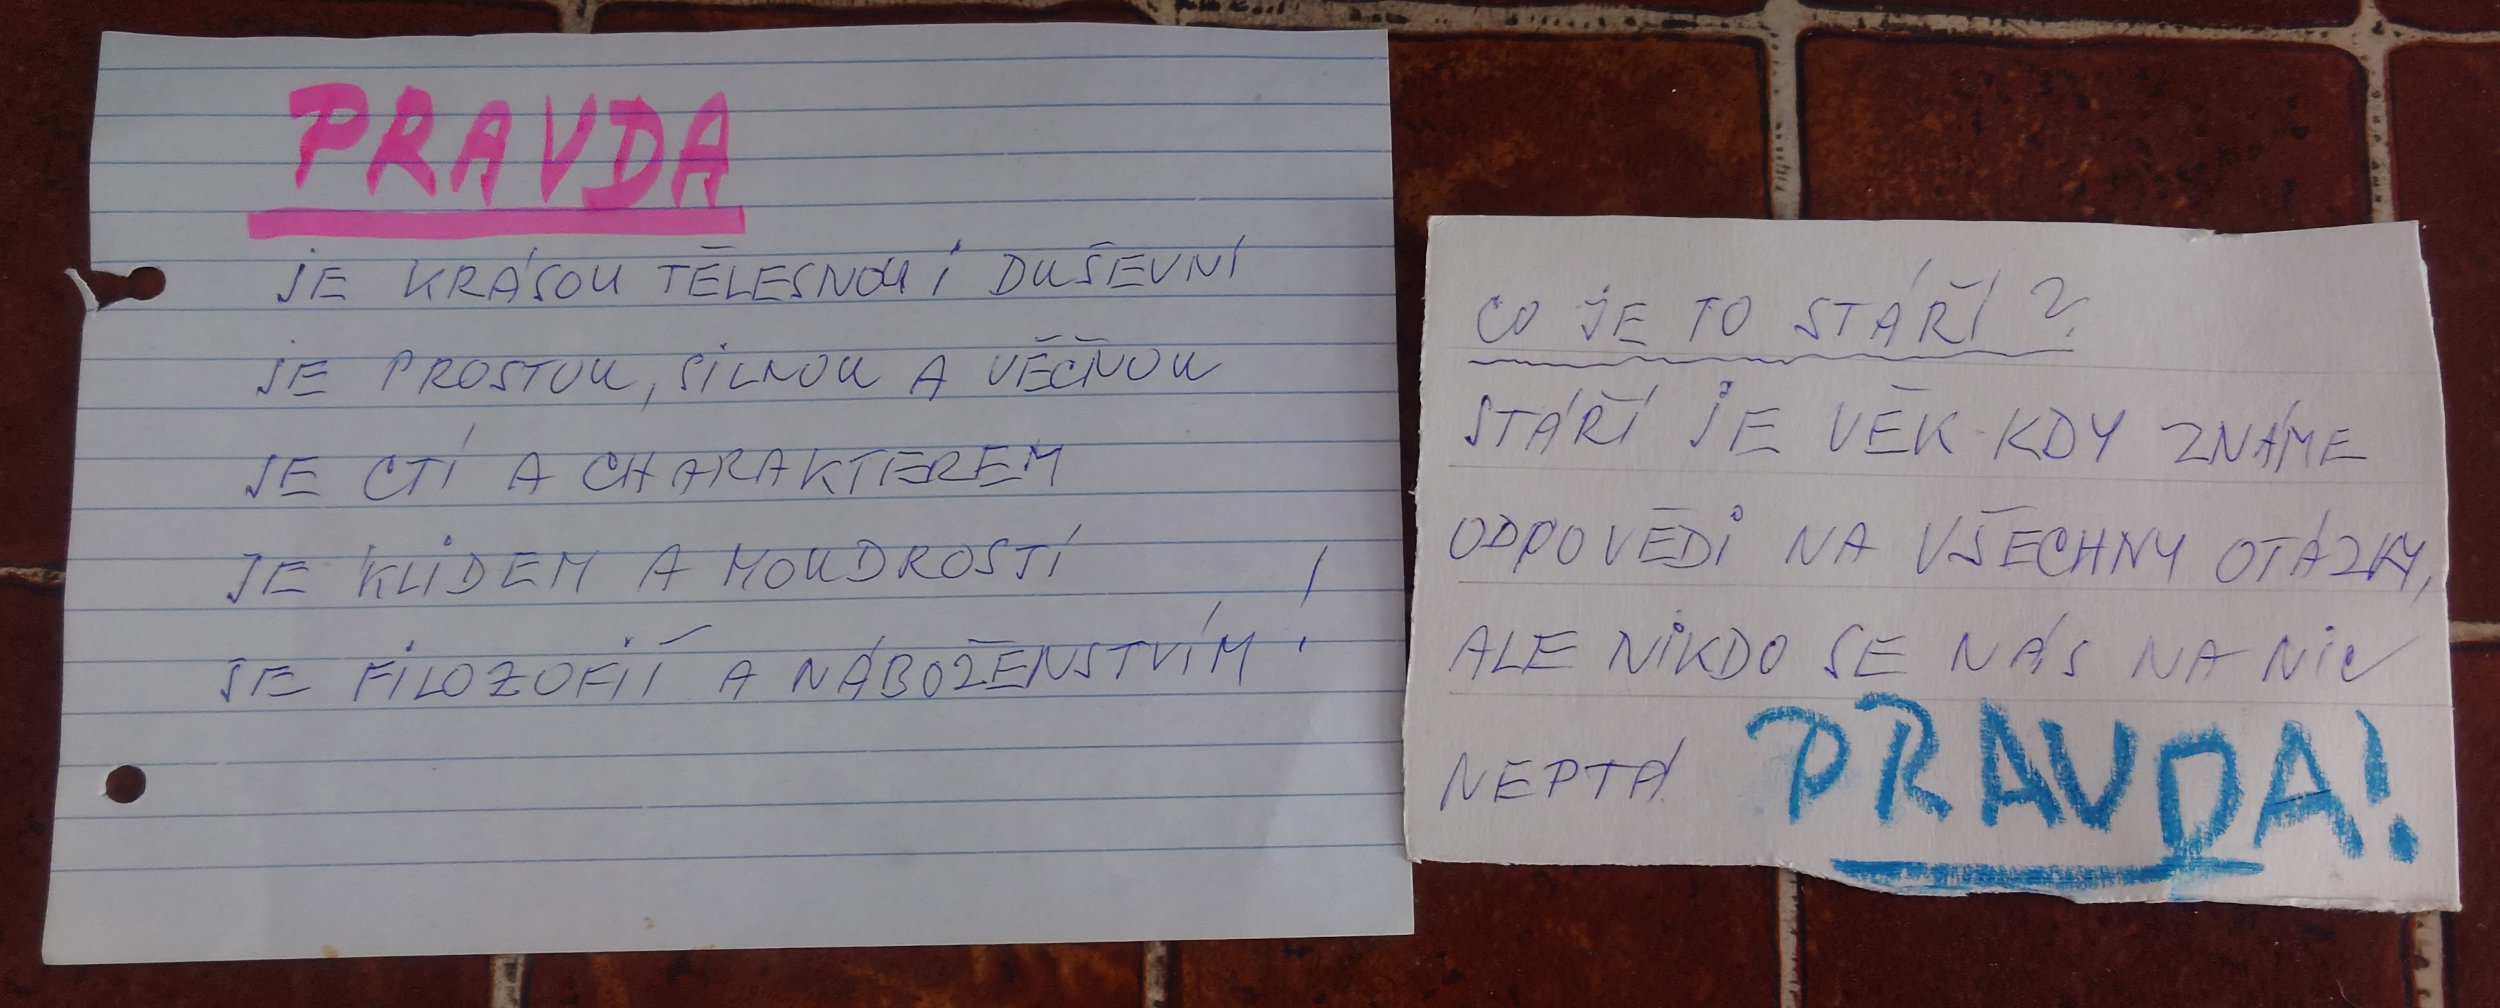 PRAVDA
JE KRÁSOU TĚLESNOU i DUŠEVNÍ
JE PROSTOU, SiLNOU A VĚČNOU
JE CTÍ A CHARAKTEREM
JE KLiDEM A MOUDROSTÍ
JE FiLOZOFiÍ A NÁBOŽENSTVÍM!
CO JE TO STÁŘÍ?
STÁŘÍ JE VĚK KDY ZNÁME
ODPOVĚDi NA VŠECHNY OTÁZKY,
ALE NiKDO SE NÁS NA NiC
NEPTÁ. PRAVDA!